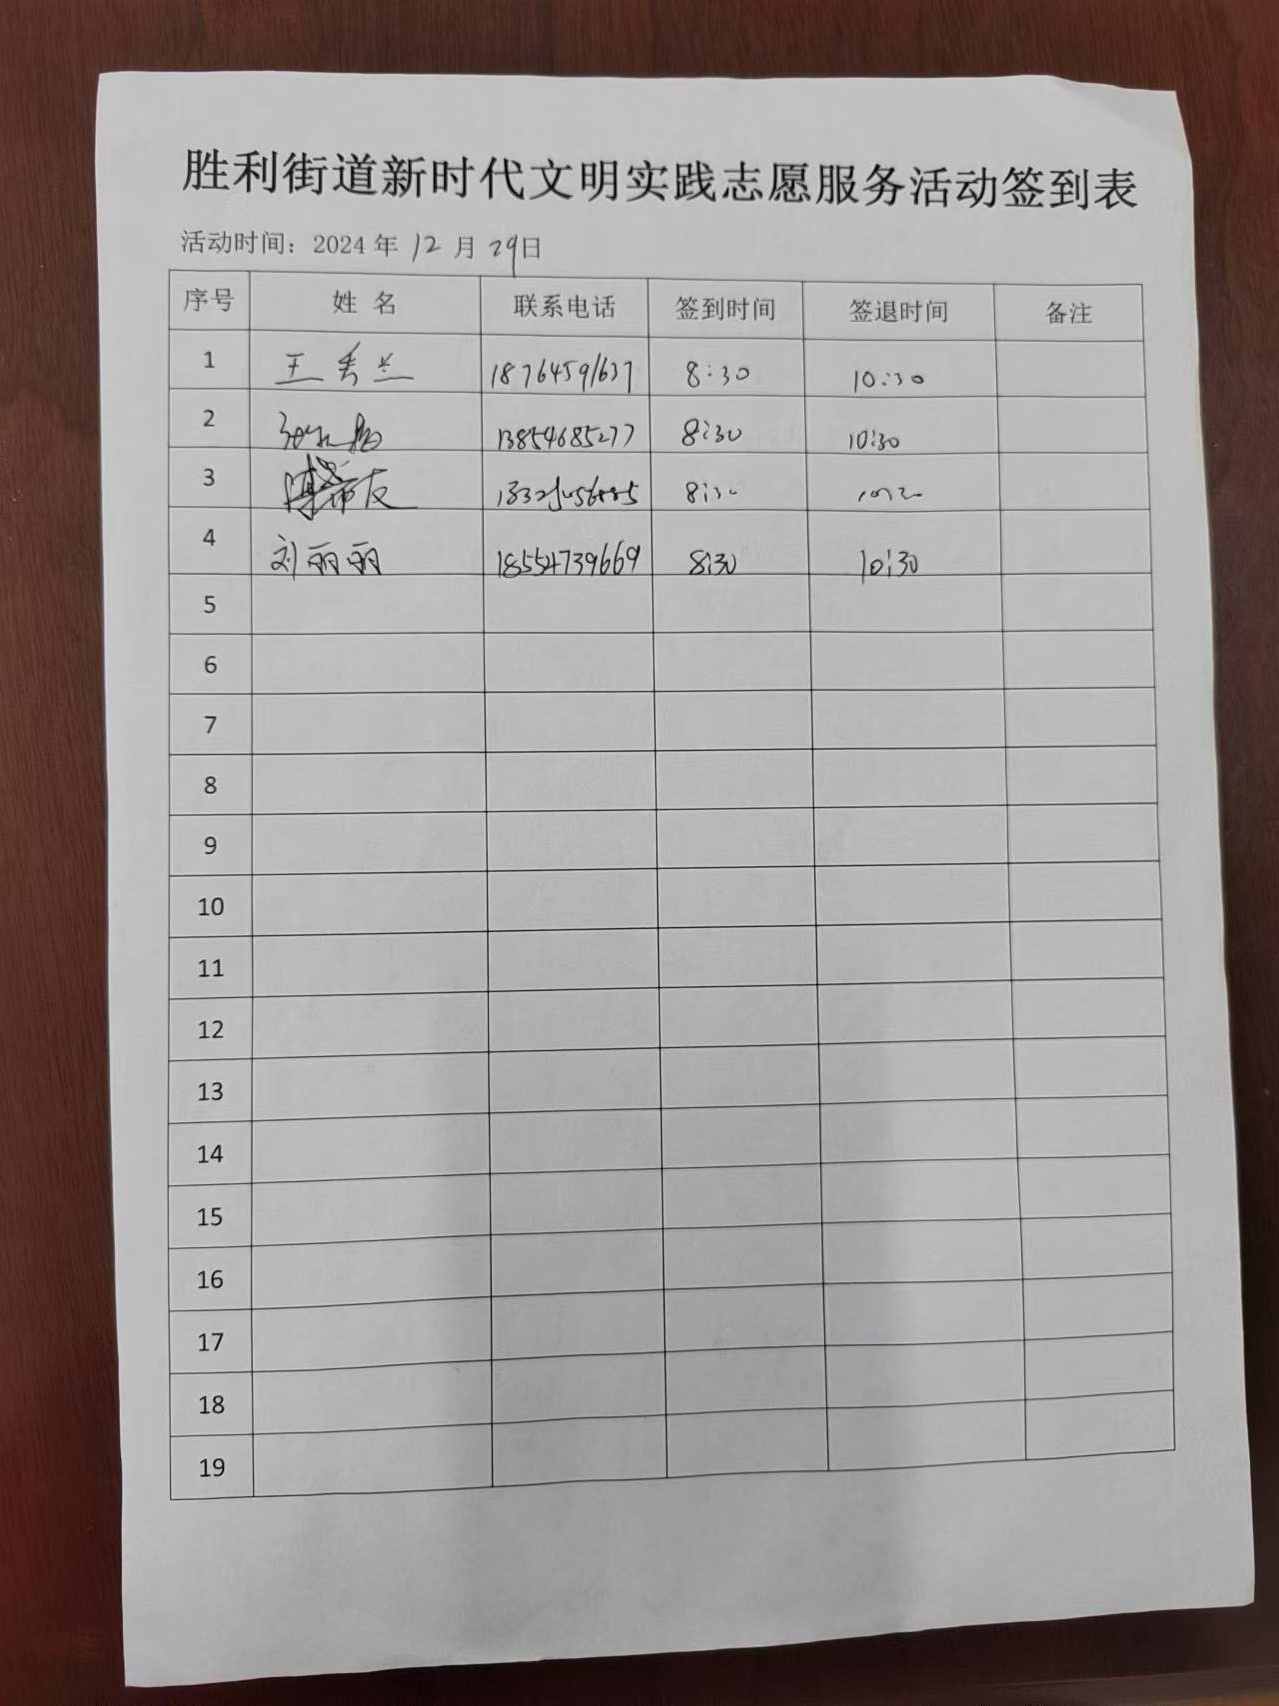 胜利街道新时代文明实践志愿服务活动签到表
活动时间：2024年 12 月 29日
序号 姓 名 联系电话 签到时间 签退时间 备注
1 王秀兰 18764591637 8:30 10:30
2 13854685277 8:30 10:30
3 8:30
4 刘丽丽 18554739669 8:30 10:30
5
6
7
8
9
10
11
12
13
14
15
16
17
18
19